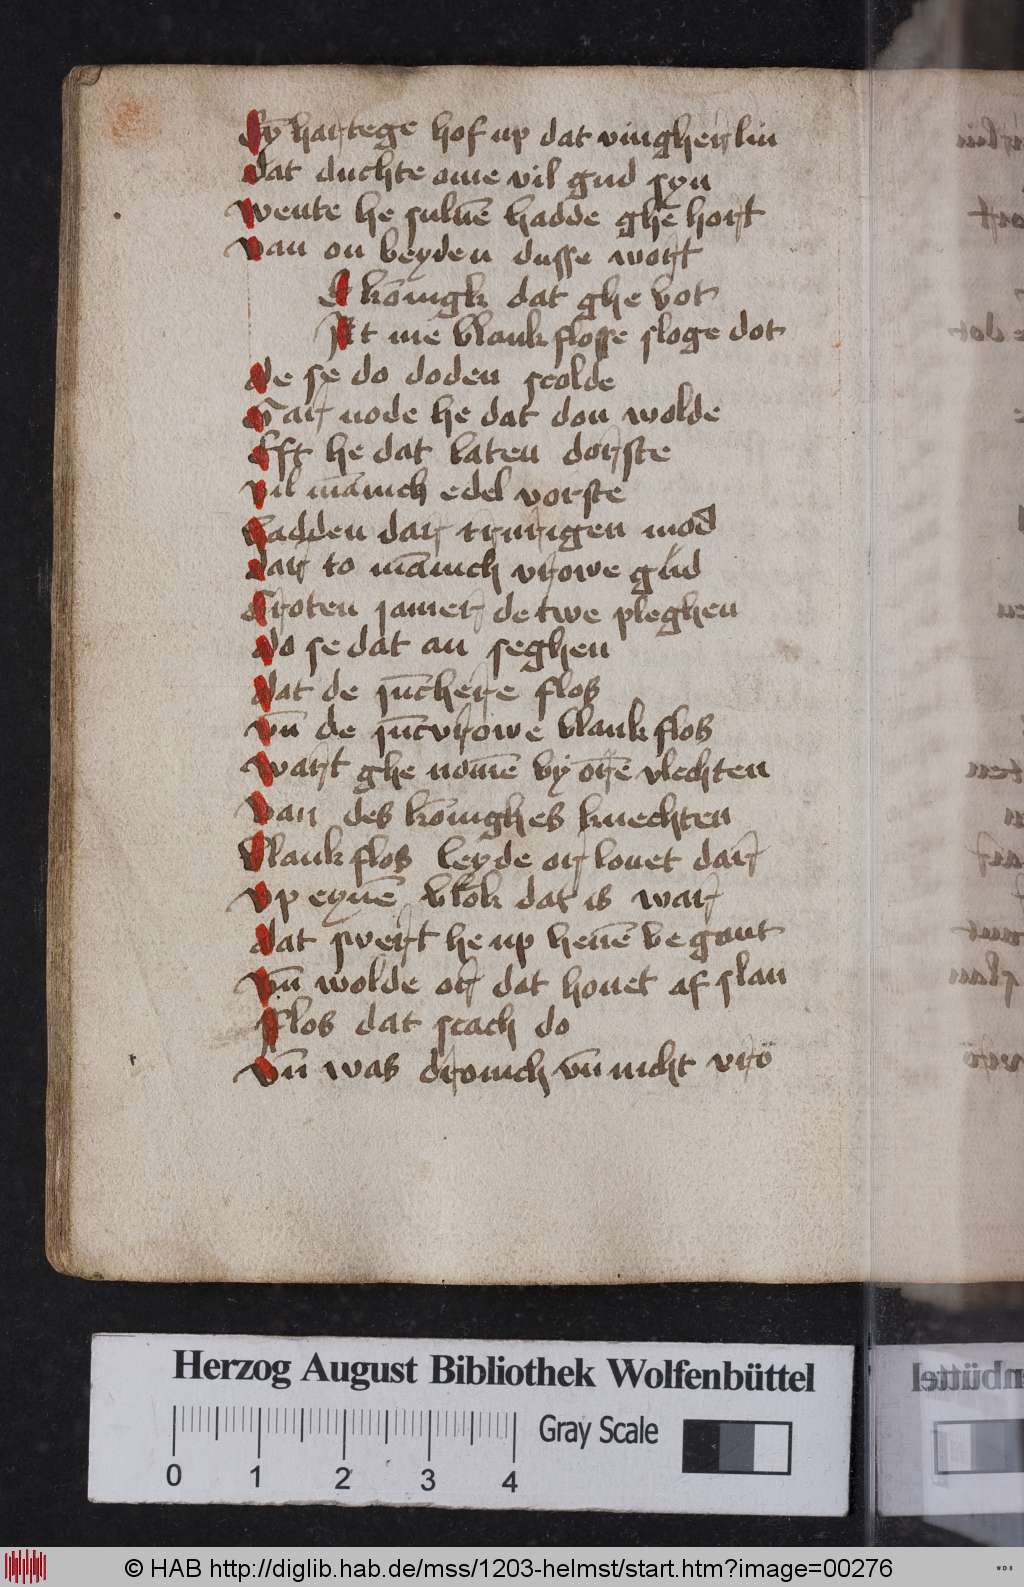 Ey hartege hof up dat vingherlin
dat duchte ome vil gud syn
wente he suluē hadde ghe hort
van on beyden dusse wort
De kōnigk dat ghe bot
Dat me blankflosse sloge dot
de se do doden scolde
Gar node he dat don wolde
Efft he dat laten dorste
vil mānich edel vorste
hadden dar trurigen mod
dar to mānich vrowe gud
Groten jamer de twe pleghen
do se dat an seghen
dat de jūchere flos
vn̄ de jūcvrowe blankflos
wart ghe nomē by orē vlechten
van des kōnighes knechten
blankflos leyde or houet dar
vp eynē blok dat is war
dat swert he up heuē be gont
vn̄ wolde or dat houet af slan
flos dat scach do
vn̄ was drouich vn̄ nicht vro
Herzog August Bibliothek Wolfenbüttel
Gray Scale
0 1 2 3 4
© HAB http://diglib.hab.de/mss/1203-helmst/start.htm?image=00276